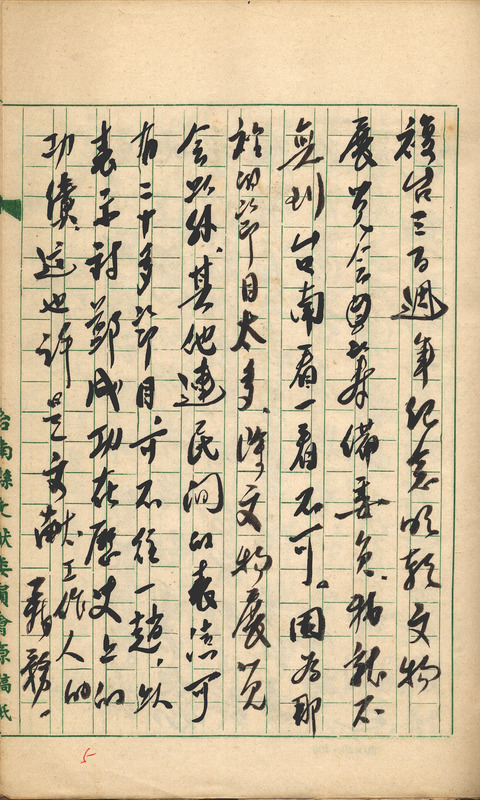 復台三百週年紀念明鄭文物
展览会因籌備委員,稱就不
到台南看一看不可。因為那
節目太多,除文物展览
会以外,其他連民间的表演可
有二十多節目,可不往一趟,以
表示对鄭成功在歷史上的
功績,這也許是文献工作人的
義務。
台南縣文献委員會原稿紙
5